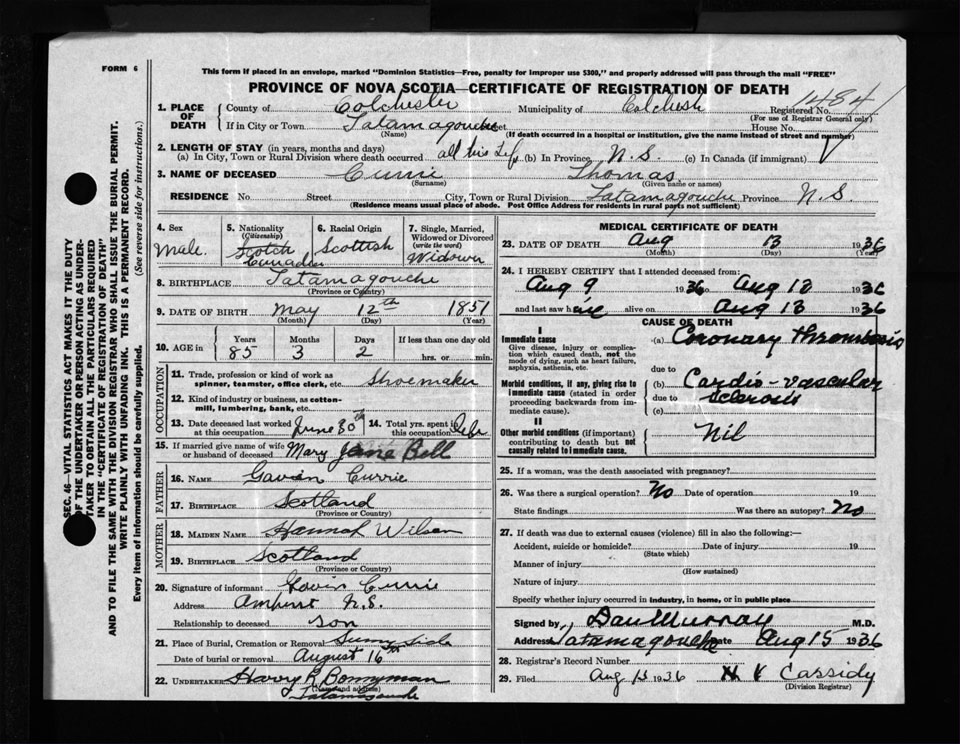 FORM 6
This form if placed in an envelope, marked "Dominion Statistics—Free, penalty for improper use $300," and properly addressed will pass through the mail "FREE"
PROVINCE OF NOVA SCOTIA—CERTIFICATE OF REGISTRATION OF DEATH
1. PLACE OF DEATH County of Colchester Municipality of Colchester Registered No. 1484
(For use of Registrar General only)
If in City or Town Tatamagouche Street House No.
(Name) (If death occurred in a hospital or institution, give the name instead of street and number)
2. LENGTH OF STAY (in years, months and days)
(a) In City, Town or Rural Division where death occurred all his Life (b) In Province N.S. (c) In Canada (if immigrant)
3. NAME OF DECEASED Currie Thomas
(Surname) (Given name or names)
RESIDENCE No. Street City, Town or Rural Division Tatamagouche Province N.S.
(Residence means usual place of abode. Post Office Address for residents in rural parts not sufficient)
4. Sex Male.
5. Nationality (Citizenship) Scotch Canadian
6. Racial Origin Scottish
7. Single, Married, Widowed or Divorced (write the word) Widower
8. BIRTHPLACE Tatamagouche
(Province or Country)
9. DATE OF BIRTH May 12th 1851
(Month) (Day) (Year)
10. AGE in Years 85 Months 3 Days 2 If less than one day old hrs. or min.
OCCUPATION
11. Trade, profession or kind of work as spinner, teamster, office clerk, etc. Shoemaker
12. Kind of industry or business, as cotton-mill, lumbering, bank, etc.
13. Date deceased last worked at this occupation June 30th 14. Total yrs. spent in this occupation Life
15. If married give name of wife or husband of deceased Mary Jane Bell
FATHER
16. NAME Gavin Currie
17. BIRTHPLACE Scotland
(Province or Country)
MOTHER
18. MAIDEN NAME Hannah Wilson
19. BIRTHPLACE Scotland
(Province or Country)
20. Signature of informant Gavin Currie
Address Amherst N.S.
Relationship to deceased son
21. Place of Burial, Cremation or Removal
Date of burial or removal August 16th
22. UNDERTAKER Harry R Bonnyman
(Name and address)
Tatamagouche
MEDICAL CERTIFICATE OF DEATH
23. DATE OF DEATH Aug 13 1936
(Month) (Day) (Year)
24. I HEREBY CERTIFY that I attended deceased from:
Aug 9 1936 to Aug 12 1936
and last saw him alive on Aug 13 1936
CAUSE OF DEATH
I
Immediate cause (a) Coronary Thrombosis
Give disease, injury or complication which caused death, not the mode of dying, such as heart failure, asphyxia, asthenia, etc.
due to
Morbid conditions, if any, giving rise to immediate cause (stated in order proceeding backwards from immediate cause).
(b) Cardio-vascular
due to sclerosis
(c)
II
Other morbid conditions (if important) contributing to death but not causally related to immediate cause. Nil
25. If a woman, was the death associated with pregnancy?
26. Was there a surgical operation? No Date of operation 19
State findings Was there an autopsy? No
27. If death was due to external causes (violence) fill in also the following:—
Accident, suicide or homicide? Date of injury 19
(State which)
Manner of injury
(How sustained)
Nature of injury
Specify whether injury occurred in industry, in home, or in public place
Signed by Dan Murray M.D.
Address Tatamagouche Date Aug 15 1936
28. Registrar's Record Number
29. Filed Aug 15 1936 Cassidy
(Division Registrar)
SEC. 46—VITAL STATISTICS ACT MAKES IT THE DUTY
OF THE UNDERTAKER OR PERSON ACTING AS UNDER-
TAKER TO OBTAIN ALL THE PARTICULARS REQUIRED
IN THE "CERTIFICATE OF REGISTRATION OF DEATH"
AND TO FILE THE SAME WITH THE DIVISION REGISTRAR WHO SHALL ISSUE THE BURIAL PERMIT.
WRITE PLAINLY WITH UNFADING INK. THIS IS A PERMANENT RECORD.
Every item of information should be carefully supplied. (See reverse side for instructions.)